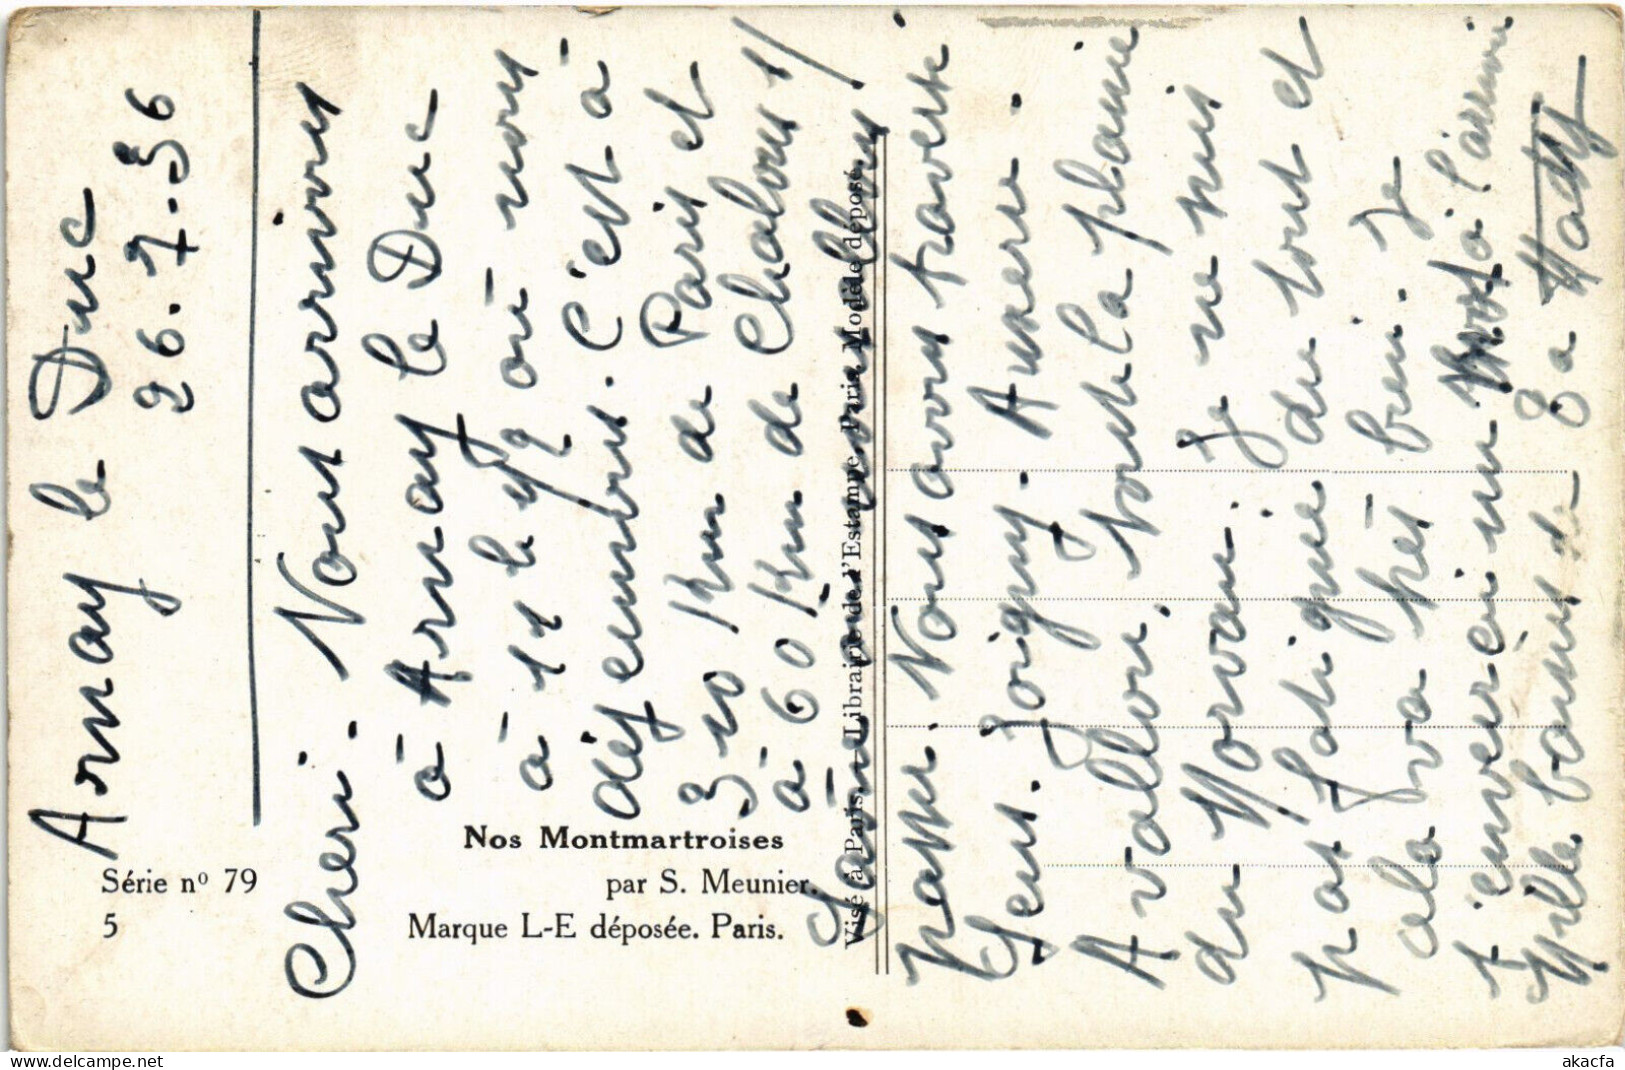 Arnay le Duc
26.7.36
Cheri. Nous arrivons
à Arnay le Duc
à où nous
déjeunons. C'est à
310 Km de Paris et
à 60 Km de Chalons s/
Saône
passer. Nous avons traversé
Sens. Joigny. Auxerre.
Avallon, toute la plaine
du Morvan. Je ne suis
pas fatiguée du tout et
cela va très bien. Je
t'enverrai un mot à l'arrivée
Mille baisers de ta
Nos Montmartroises
Série nº 79 par S. Meunier.
5 Marque L-E déposée. Paris.
Visé à Paris. Librairie de l'Estampe, Paris, Modèle déposé.
www.delcampe.net
akacfa